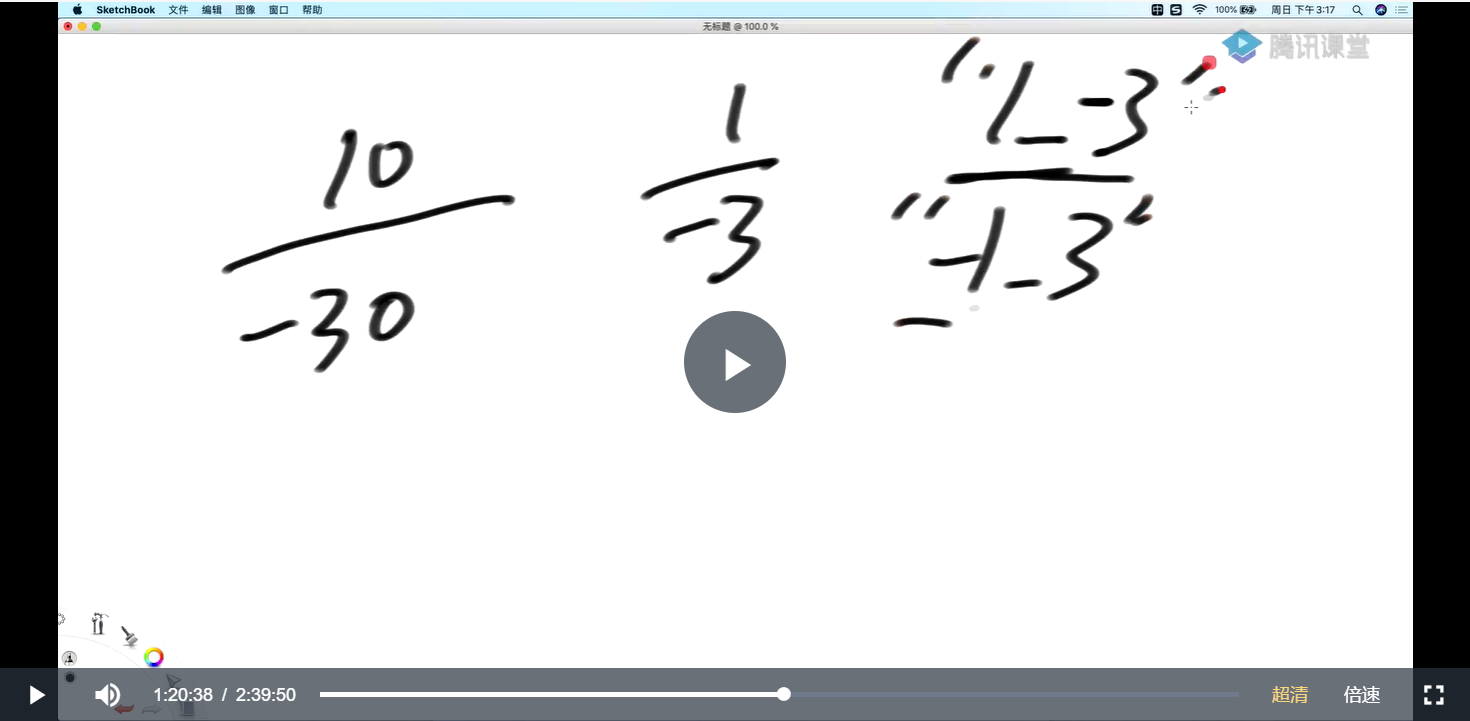 SketchBook 文件 编辑 图像 窗口 帮助 100% 周日 下午3:17
无标题 @ 100.0 %
腾讯课堂
10
-30
1
-3
"1_-3"
"-1_3"
-
1:20:38 / 2:39:50 超清 倍速